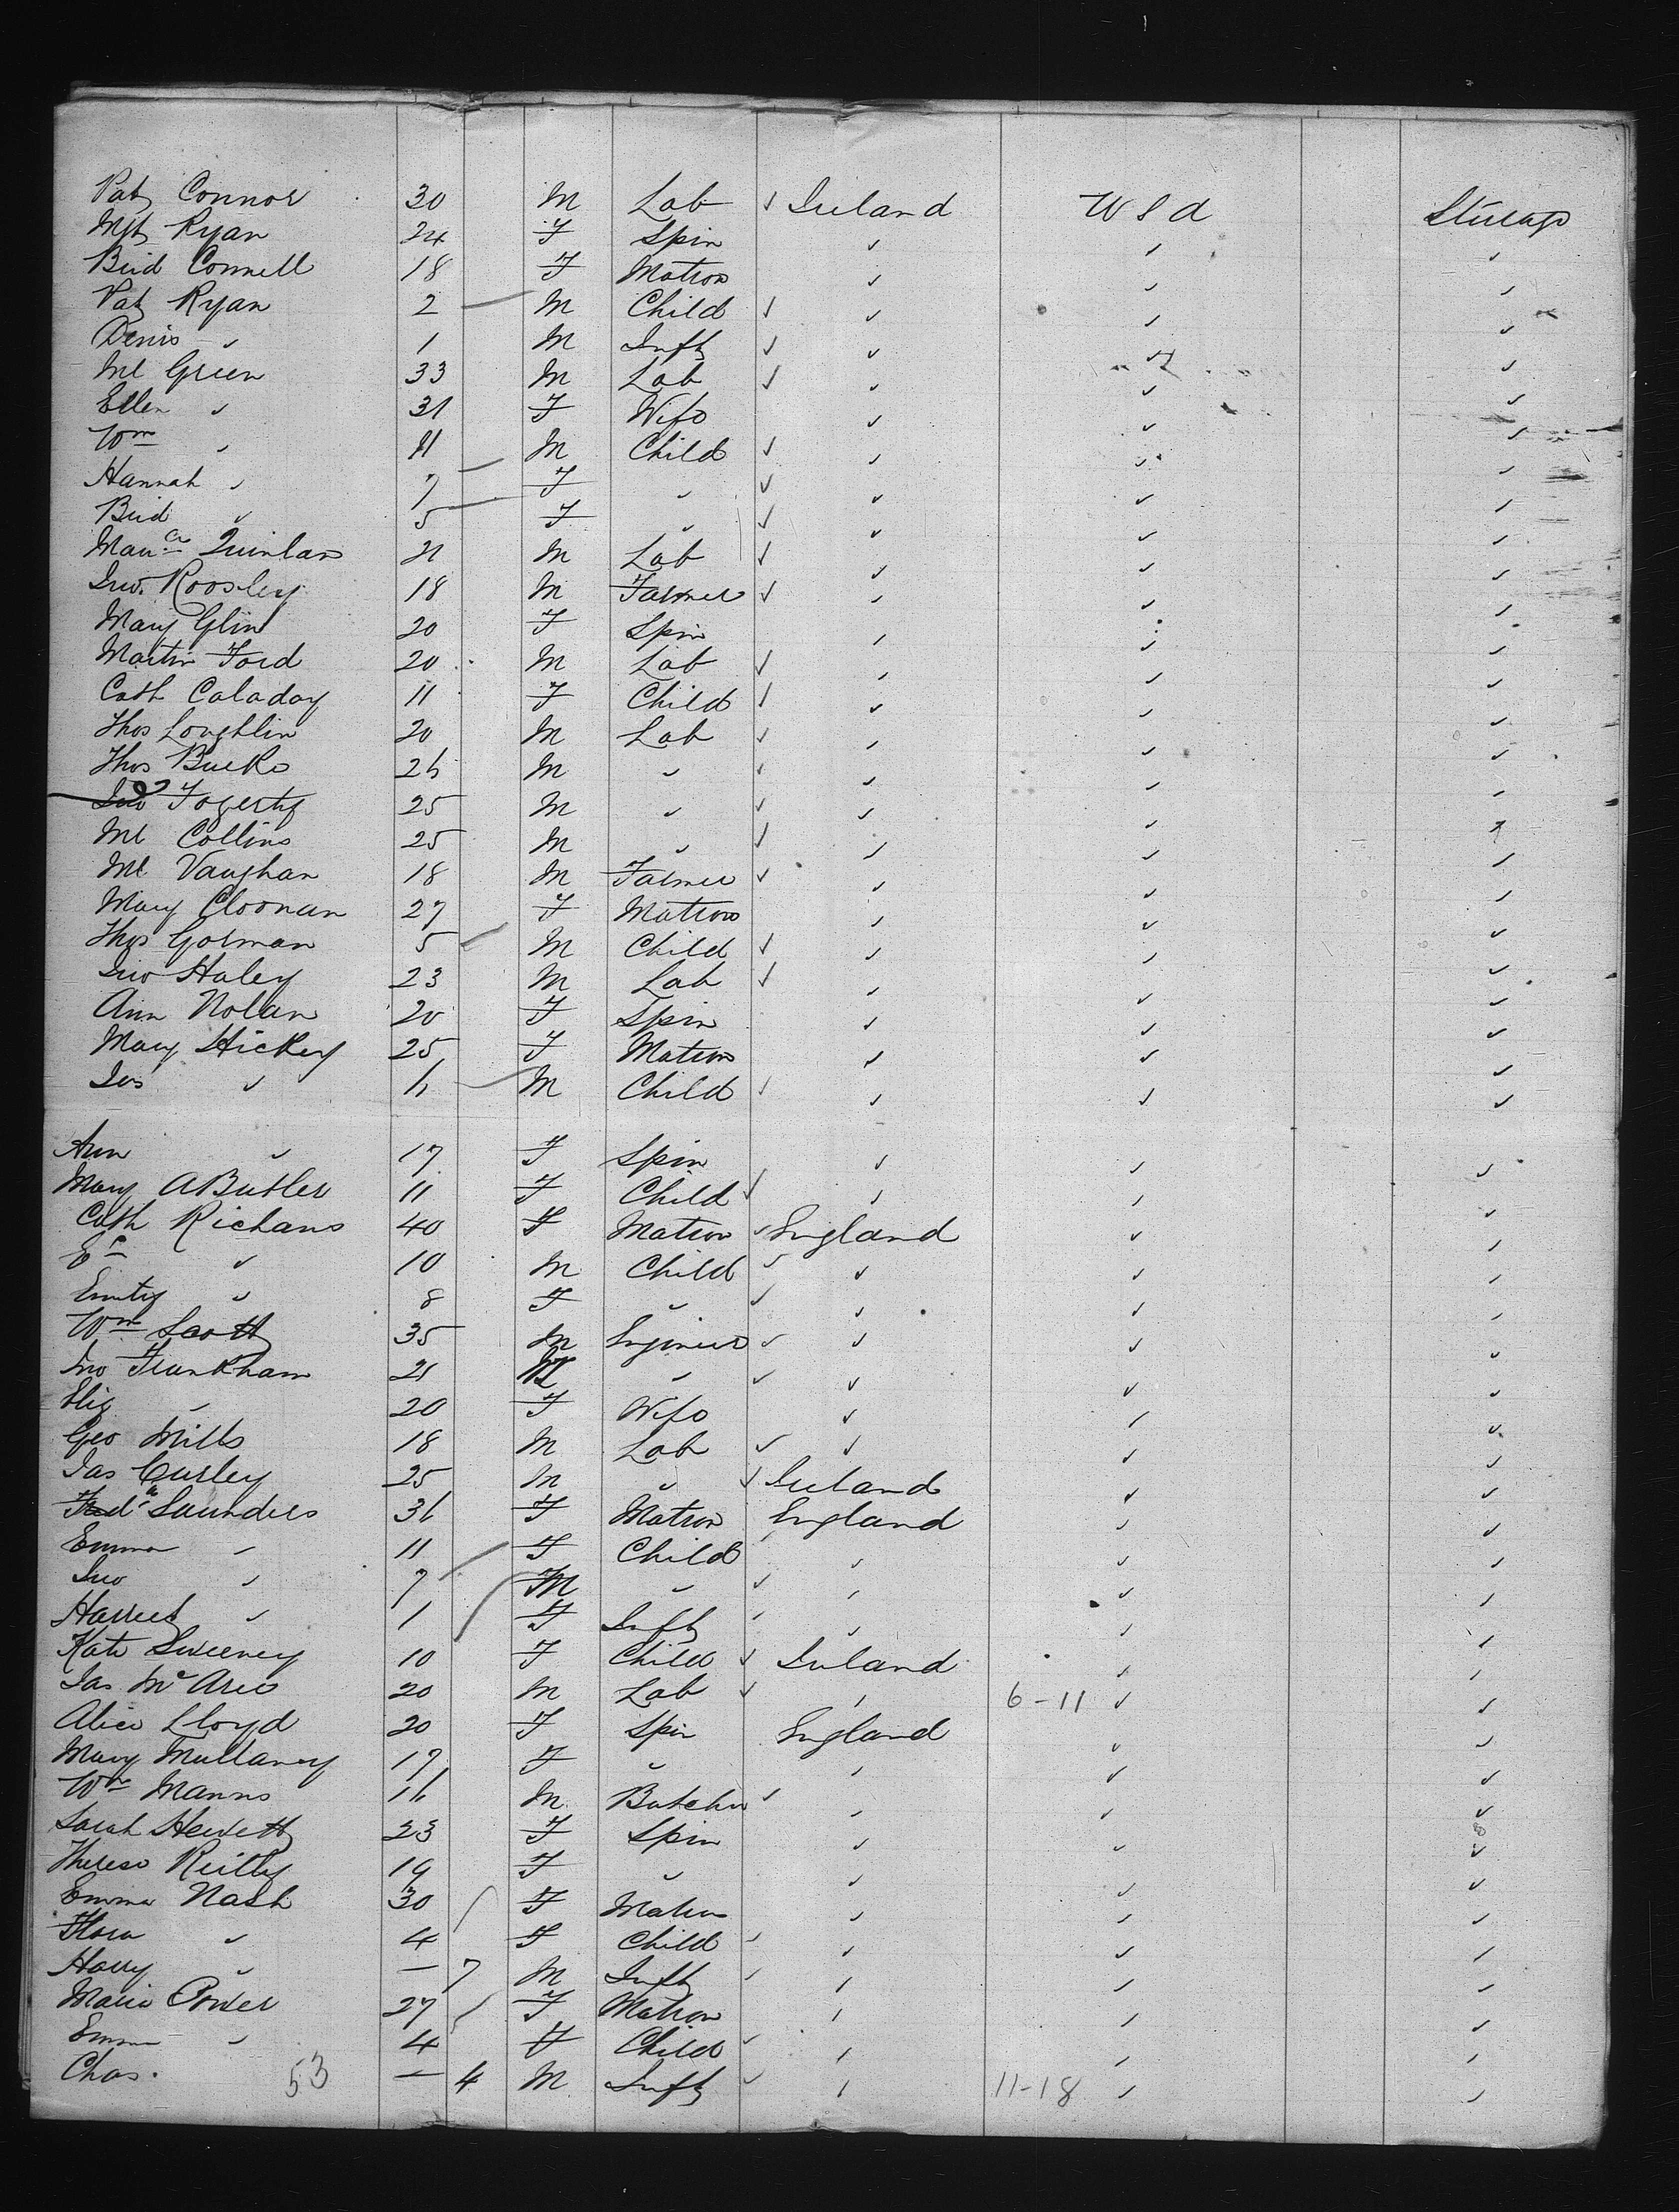 Pat Connor 30 M Lab ✓ Ireland U S A Steerage
Mgt Ryan 24 F Spin ✓ ✓ ✓
Brid Connell 18 F Matron ✓ ✓ ✓
Pat Ryan 2 M Child ✓ ✓ ✓ ✓
Denis " 1 M Inft ✓ ✓ ✓ ✓
Ml Green 33 M Lab ✓ ✓ ✓ ✓
Ellen " 31 F Wife ✓ ✓ ✓
Wm " 11 M Child ✓ ✓ ✓ ✓
Hannah " 7 F " ✓ ✓ ✓ ✓
Brid " 5 F " ✓ ✓ ✓ ✓
Mauce Quinlan 21 M Lab ✓ ✓ ✓ ✓
Jno. 18 M Farmer ✓ ✓ ✓ ✓
Mary Glin 20 F Spin ✓ ✓ ✓
Martin Ford 20 M Lab ✓ ✓ ✓ ✓
Cath Caladay 11 F Child ✓ ✓ ✓ ✓
Thos Loughlin 20 M Lab ✓ ✓ ✓ ✓
Thos Burke 26 M " ✓ ✓ ✓ ✓
Jno Fogerty 25 M " ✓ ✓ ✓ ✓
Ml Collins 25 M " ✓ ✓ ✓ ✓
Ml Vaughan 18 M Farmer ✓ ✓ ✓ ✓
Mary Cloonan 27 F Matron ✓ ✓ ✓
Thos Gorman 5 M Child ✓ ✓ ✓ ✓
Jno Haley 23 M Lab ✓ ✓ ✓ ✓
Ann Nolan 20 F Spin ✓ ✓ ✓
Mary Hickey 25 F Matron ✓ ✓ ✓
Jas " 6 M Child ✓ ✓ ✓ ✓
Ann " 17 F Spin ✓ ✓ ✓
Mary A Butler 11 F Child ✓ ✓ ✓ ✓
Cath Richans 40 F Matron ✓ England ✓ ✓
" 10 M Child ✓ ✓ ✓ ✓
Emily " 8 F " ✓ ✓ ✓ ✓
Wm Scott 35 M Engineer ✓ ✓ ✓ ✓
Jno Frankham 21 M " ✓ ✓ ✓ ✓
Eliz " 20 F Wife ✓ ✓ ✓
Geo Mills 18 M Lab ✓ ✓ ✓ ✓
Jas Curley 25 M " ✓ Ireland ✓ ✓
Fredk Saunders 36 F Matron England ✓ ✓
Emma " 11 F Child ✓ ✓ ✓
Jno " 7 M " ✓ ✓ ✓ ✓
Harriet " 1 F Inft ✓ ✓ ✓ ✓
Kate Sweeney 10 F Child ✓ Ireland ✓ ✓
Jas 20 M Lab ✓ ✓ 6-11 ✓ ✓
Alice Lloyd 20 F Spin England ✓ ✓
Mary Mullaney 17 F " ✓ ✓ ✓
Wm Manns 16 M Butcher ✓ ✓ ✓ ✓
Sarah Hewett 23 F Spin ✓ ✓ ✓
Theresa Reilly 19 F " ✓ ✓ ✓
Emma Nash 30 F Matron ✓ ✓ ✓
Flora " 4 F Child ✓ ✓ ✓ ✓
Harry " — 7 M Inft ✓ ✓ ✓ ✓
Maria Power 27 F Matron ✓ ✓ ✓
Emma " 4 F Child ✓ ✓ ✓ ✓
Chas. 53 — 4 M Inft ✓ ✓ 11-18 ✓ ✓